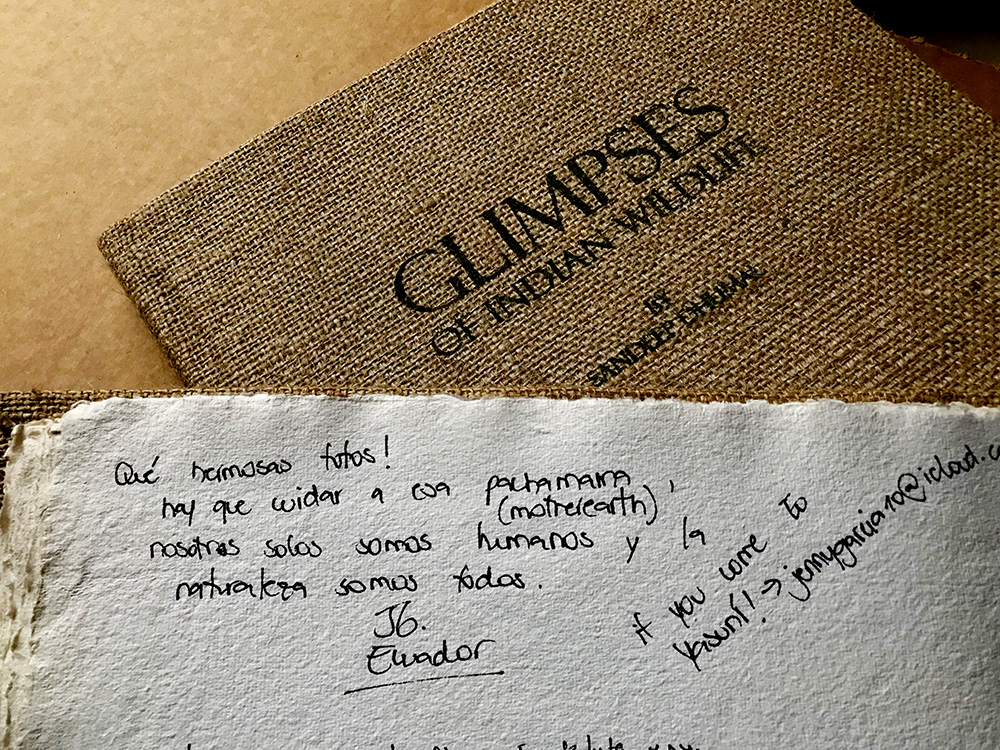 GLIMPSES
OF INDIAN WILDLIFE
BY
SANDEEP DHUMAL
Qué hermosas fotos!
hay que cuidar a esa pachamama,
(mother earth)
nosotros solos somos humanos y la
naturaleza somos todos.
JG.
Ecuador
if you come to
Yasuní! → jennypgarcia10@icloud.c